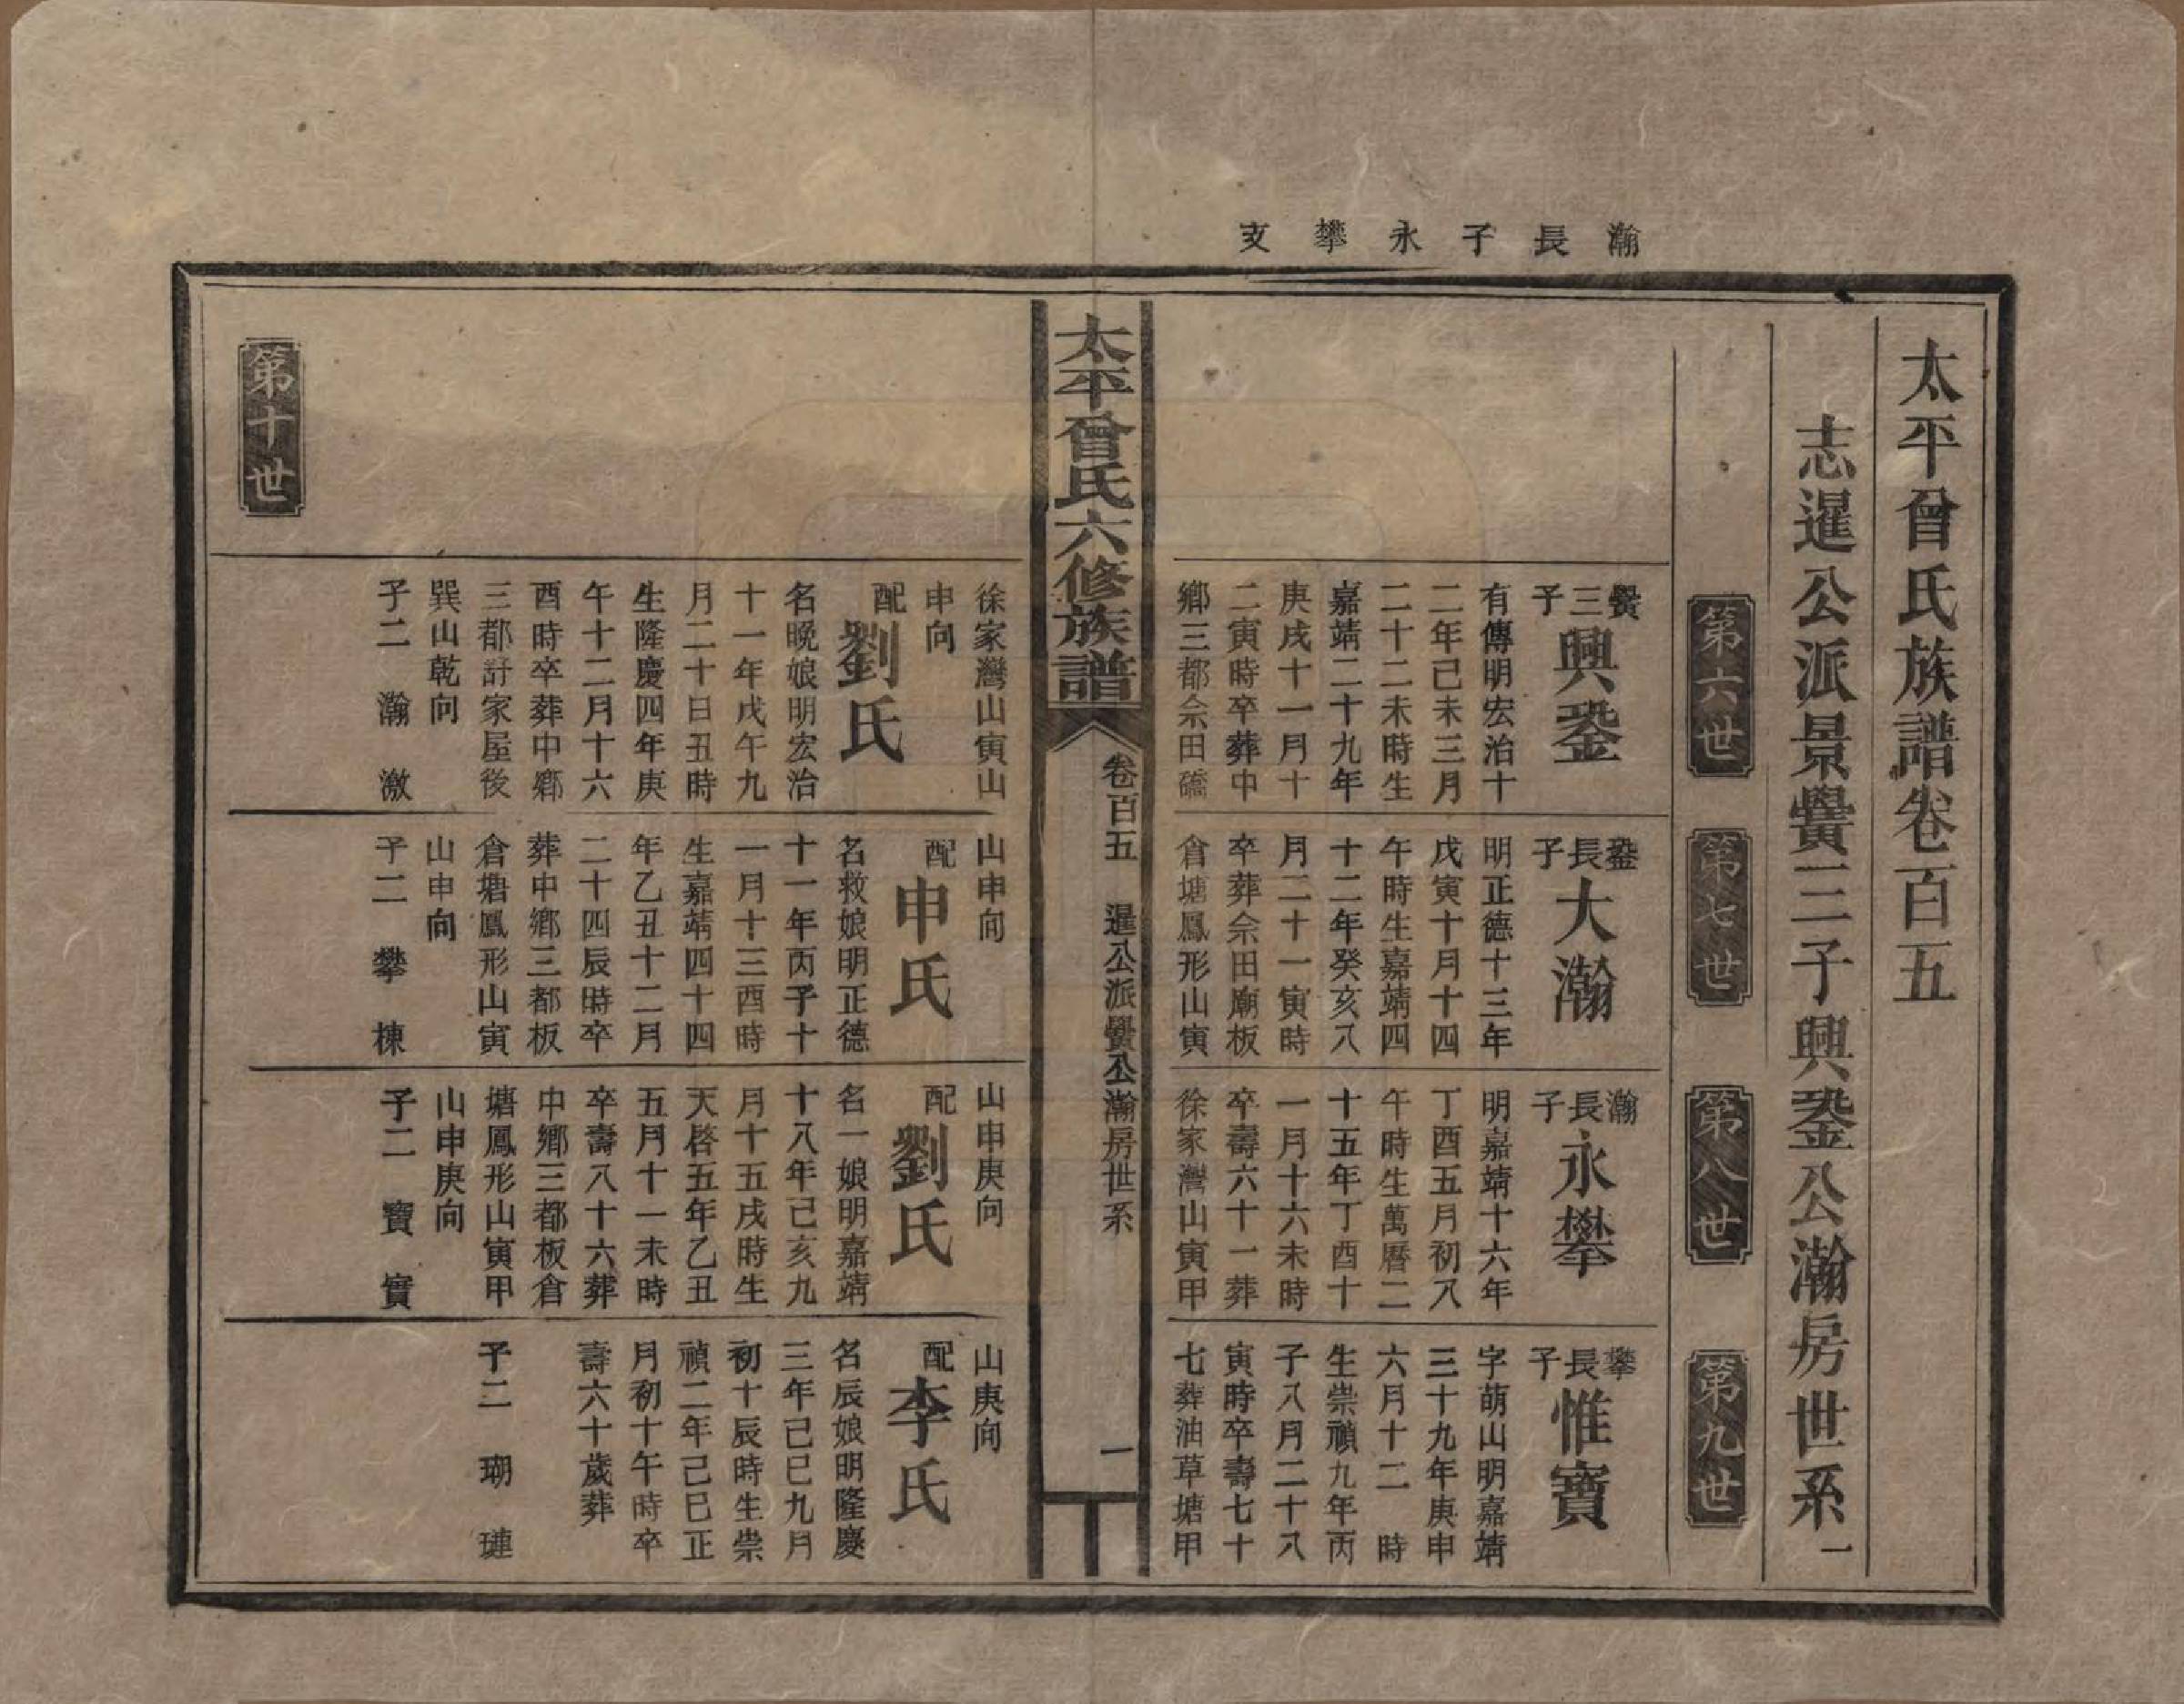 瀚長子永攀支
太平曾氏族譜卷百五
志暹公派景釁三子興鍌公瀚房世系一
第六世
第七世
第八世
第九世
釁三子
興鍌
有傳明宏治十
二年己未三月
二十二未時生
嘉靖二十九年
庚戌十一月十
二寅時卒葬中
鄉三都佘田礄
徐家灣山寅山
申向
配
劉氏
名晚娘明宏治
十一年戊午九
月二十日丑時
生隆慶四年庚
午十二月十六
酉時卒葬中鄉
三都許家屋後
巽山乾向
子二 瀚 激
鍌長子
大瀚
明正德十三年
戊寅十月十四
午時生嘉靖四
十二年癸亥八
月二十一寅時
卒葬佘田廟板
倉塘鳳形山寅
山申向
配
申氏
名救娘明正德
十一年丙子十
一月十三酉時
生嘉靖四十四
年乙丑十二月
二十四辰時卒
葬中鄉三都板
倉塘鳳形山寅
山申向
子二 攀 棟
瀚長子
永攀
明嘉靖十六年
丁酉五月初八
午時生萬曆二
十五年丁酉十
一月十六未時
卒壽六十一葬
徐家灣山寅甲
山申庚向
配
劉氏
名一娘明嘉靖
十八年己亥九
月十五戌時生
天啓五年乙丑
五月十一未時
卒壽八十六葬
中鄉三都板倉
塘鳳形山寅甲
山申庚向
子二 寶 實
攀長子
惟寶
字萌山明嘉靖
三十九年庚申
六月十二 時
生崇禎九年丙
子八月二十八
寅時卒壽七十
七葬油草塘甲
山庚向
配
李氏
名辰娘明隆慶
三年己巳九月
初十辰時生崇
禎二年己巳正
月初十午時卒
壽六十歲葬
子二 瑚 璉
太平曾氏六修族譜
卷百五 暹公派釁公瀚房世系 一
第十世